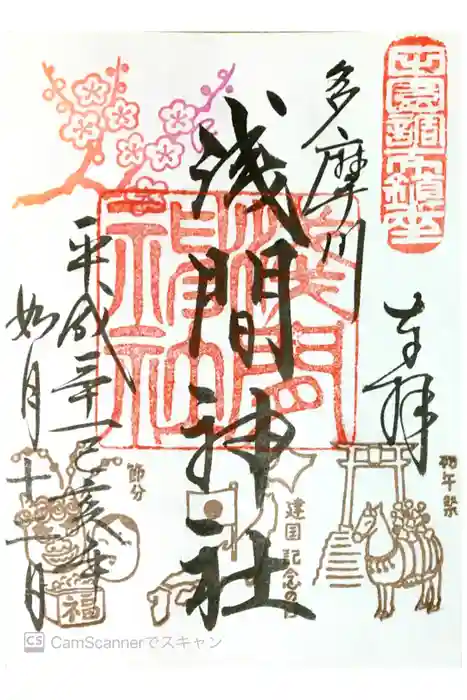 田園調布鎮座
奉拝
多摩川
浅間神社
淺間
神社
平成三十一己亥年
如月十一日
初午祭
建国記念の日
節分
福
CS CamScannerでスキャン